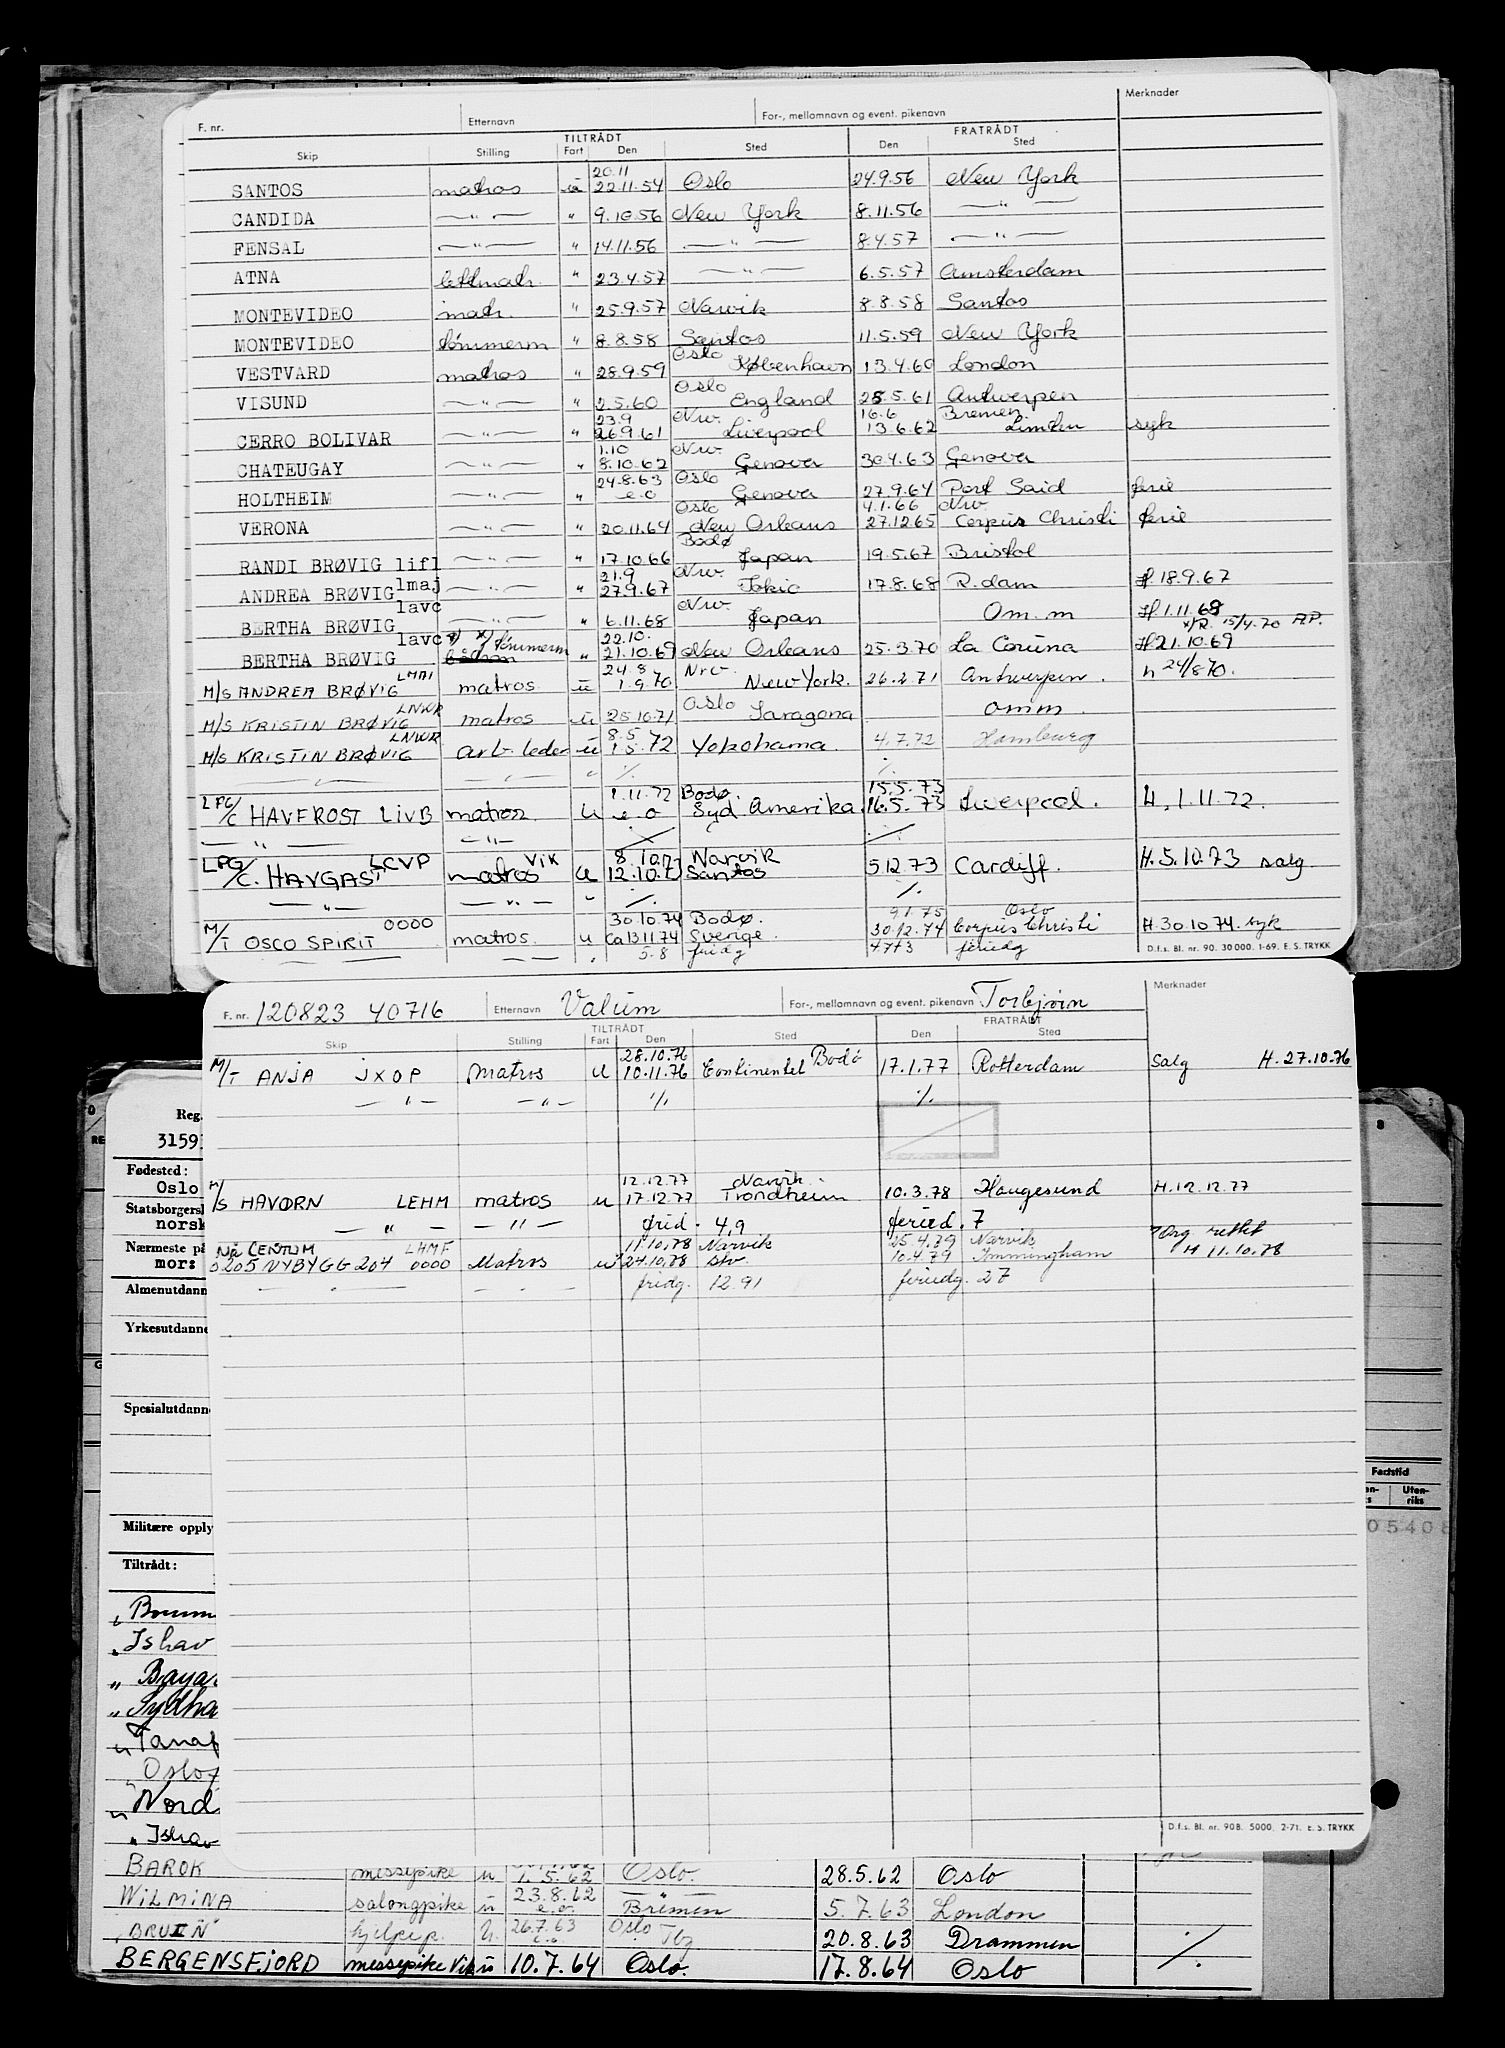 F. nr. Etternavn For-, mellomnavn og event. pikenavn Merknader
TILTRÅDT FRATRÅDT
Skip Stilling Fart Den Sted Den Sted
20.11
SANTOS matros u 22.11.54 Oslo 24.9.56 New York
CANDIDA — " — " 9.10.56 New York 8.11.56 — " —
FENSAL — " — " 14.11.56 — " — 8.4.57 — " —
ATNA lettmatr. " 23.4.57 — " — 6.5.57 Amsterdam
MONTEVIDEO matr. " 25.9.57 Narvik 8.8.58 Santos
MONTEVIDEO tømmerm " 8.8.58 Santos 11.5.59 New York
Oslo
VESTVARD matros " 28.9.59 København 13.4.60 London
Oslo
VISUND — " — " 2.5.60 England 28.5.61 Antwerpen
23.9 Nrv. 16.6 Bremen
CERRO BOLIVAR — " — " 26.9.61 Liverpool 13.6.62 Linden syk
1.10 Nrv.
CHATEUGAY — " — " 8.10.62 Genova 30.4.63 Genova
24.8.63 Oslo
HOLTHEIM — " — " e.o Genova 27.9.64 Port Said ferie
Oslo 4.1.66 Nrv
VERONA — " — " 20.11.64 New Orleans 27.12.65 Corpus Christi ferie
Bodø
RANDI BRØVIG lifl — " — " 17.10.66 Japan 19.5.67 Bristol
21.9 Nrv.
ANDREA BRØVIG lmaj — " — " 27.9.67 Tokio 17.8.68 R.dam H.18.9.67
Nrv.
BERTHA BRØVIG lavc — " — " 6.11.68 Japan Om.m H.1.11.68
x/R. 15/4.70 A.P.
22.10.
BERTHA BRØVIG lavc x) x) tømmerm " 21.10.69 New Orleans 25.3.70 La Coruna H21.10.69
24.8 Nrv
M/S ANDREA BRØVIG LMAI matros u 1.9.70 New York. 26.2.71 Antwerpen. h 24/8 70.
M/S KRISTIN BRØVIG LNWR matros u 25.10.71 Oslo Taragona omm.
8.5
M/S KRISTIN BRØVIG LNWR arb. leder u 1.5.72 Yokohama. 4.7.72 Hamburg
— " — — " — " ·/. ·/.
1.11.72 Bodø. 15.5.73
LPG/C HAVFROST LIVB matros. u e.o Syd Amerika. 16.5.73 Liverpool. H. 1.11.72.
— " — — " —
8.10.73 Narvik
LPG/C. HAVGAST LCVP matros VIK u 12.10.73 Santos 5.12.73 Cardiff. H.5.10.73 salg
— " — — " — " ·/. ·/.
30.10.74 Bodø. 9.1.75 Oslo
M/T OSCO SPIRIT 0000 matros. u ca 13.11.74 Sverige. 30.12.74 Corpus Christi H.30.10.74. syk
5.8 fridg feriedg D.f.s. Bl. nr. 90. 30 000. 1-69. E. S. TRYKK
F. nr. 120823 40716 Etternavn Valum For-, mellomnavn og event. pikenavn Torbjørn Merknader
TILTRÅDT FRATRÅDT
Skip Stilling Fart Den Sted Den Sted
28.10.76 Bodø
M/T ANJA JXOP Matros u 10.11.76 Continentet 17.1.77 Rotterdam Salg H.27.10.76
— " — — " — ·/. ·/.
12.12.77 Narvik.
M/S HAVØRN LEHM matros u 17.12.77 Trondheim 10.3.78 Haugesund H.12.12.77
— " — — " — frid. 4,9 feried. 7
11.10.78 Narvik 25.4.79 Narvik Org rettet
NÅ CENTUM LHMF H 11.10.78
5205 NYBYGG 204 0000 Matros u 24.10.78 stv. 10.4.79 Immingham
— " — — " — fridg. 12.91 feriedg. 27
D.f.s. Bl. nr. 90B. 5000. 2-71. E. S. TRYKK
Reg.
3159
Fødested:
Oslo
Statsborgersk
norsk
Nærmeste på
mor:
Almenutdann
Yrkesutdanne
Spesialutdann
Fartstid
Uten-
riks
Militære opply
05408
Tiltrådt:
Ishav
Baya
Sydha
Tana
Oslof
Nord
Ishav
BAROK messepike u 1.5.62 Oslo. 28.5.62 Oslo
WILMINA salongpike u 23.8.62 e.o. — " — Bremen 5.7.63 London
BRUIN hjelpep. u. 26.7.63 Oslo Tbg 20.8.63 Drammen
BERGENSFJORD messepike Vik u 10.7.64 Oslo. 17.8.64 Oslo ·/.